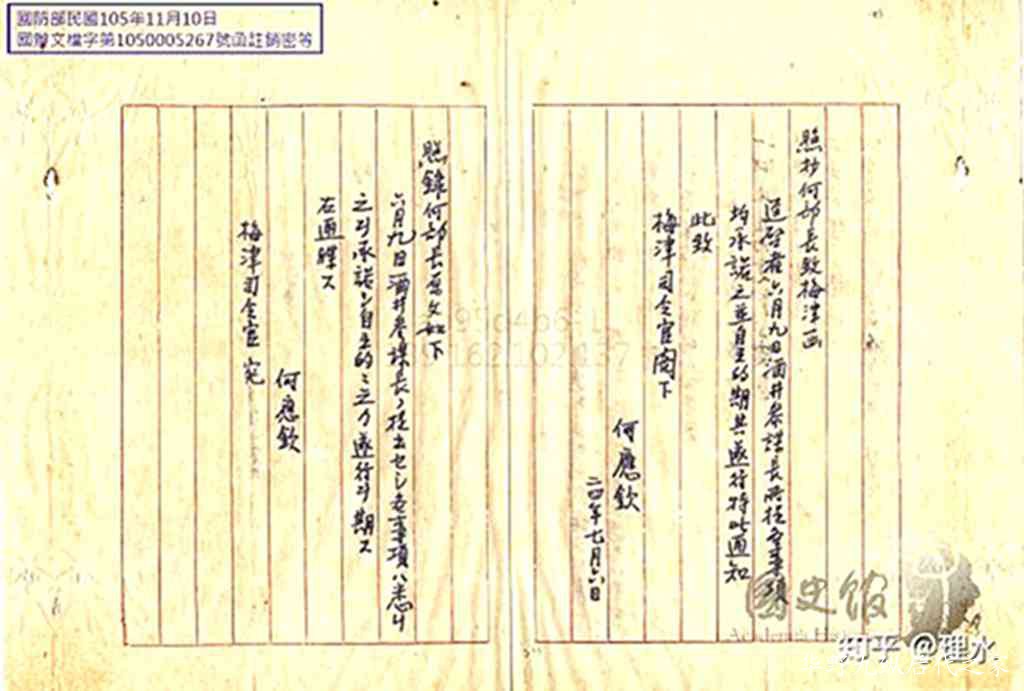 國防部民國105年11月10日
國贈文檔字第1050005267號函註銷密等
照抄何部長致梅津函
逕啓者六月九日酒井參謀長所提各事項
均承諾之並自主的期其遂行特此通知
此致
梅津司令官閣下
何應欽
二四年七月六日
照錄何部長原文如下
六月九日酒井參謀長ノ提出セシ各事項ハ悉ク
之ヲ承諾シ自主的ニ之カ遂行ヲ期ス
右通牒ス
何應欽
梅津司令官 宛
國史館
知乎 @理水